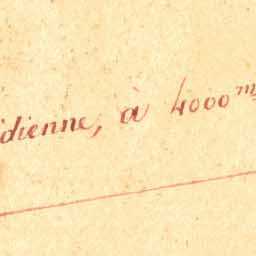 idienne, à 4000ᵐ